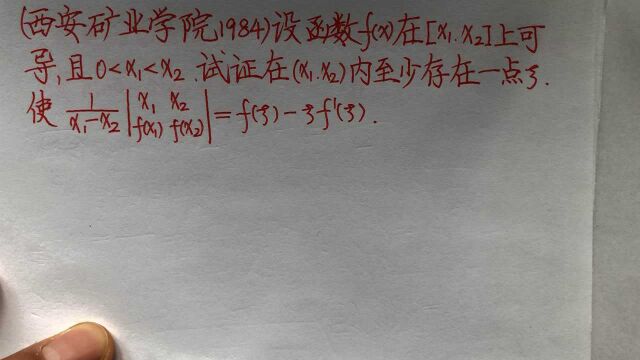 (西安矿业学院,1984)设函数f(x)在[x₁.x₂]上可
导,且0<x₁<x₂.试证在(x₁.x₂)内至少存在一点ξ.
使 1/(x₁-x₂) |x₁ x₂; f(x₁) f(x₂)| = f(ξ)-ξf'(ξ).